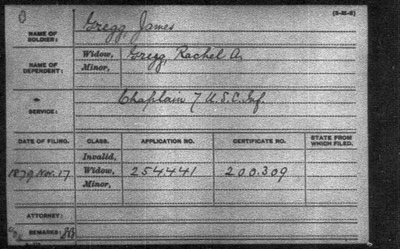 (3-M-2)
NAME OF SOLDIER: Gregg, James
NAME OF DEPENDENT: Widow, Gregg, Rachel A.
Minor,
SERVICE: Chaplain 7 U.S.C. Inf.
DATE OF FILING. CLASS. APPLICATION NO. CERTIFICATE NO. STATE FROM WHICH FILED.
Invalid,
1879 Nov. 17 Widow, 254441 200.309
Minor,
ATTORNEY:
REMARKS: